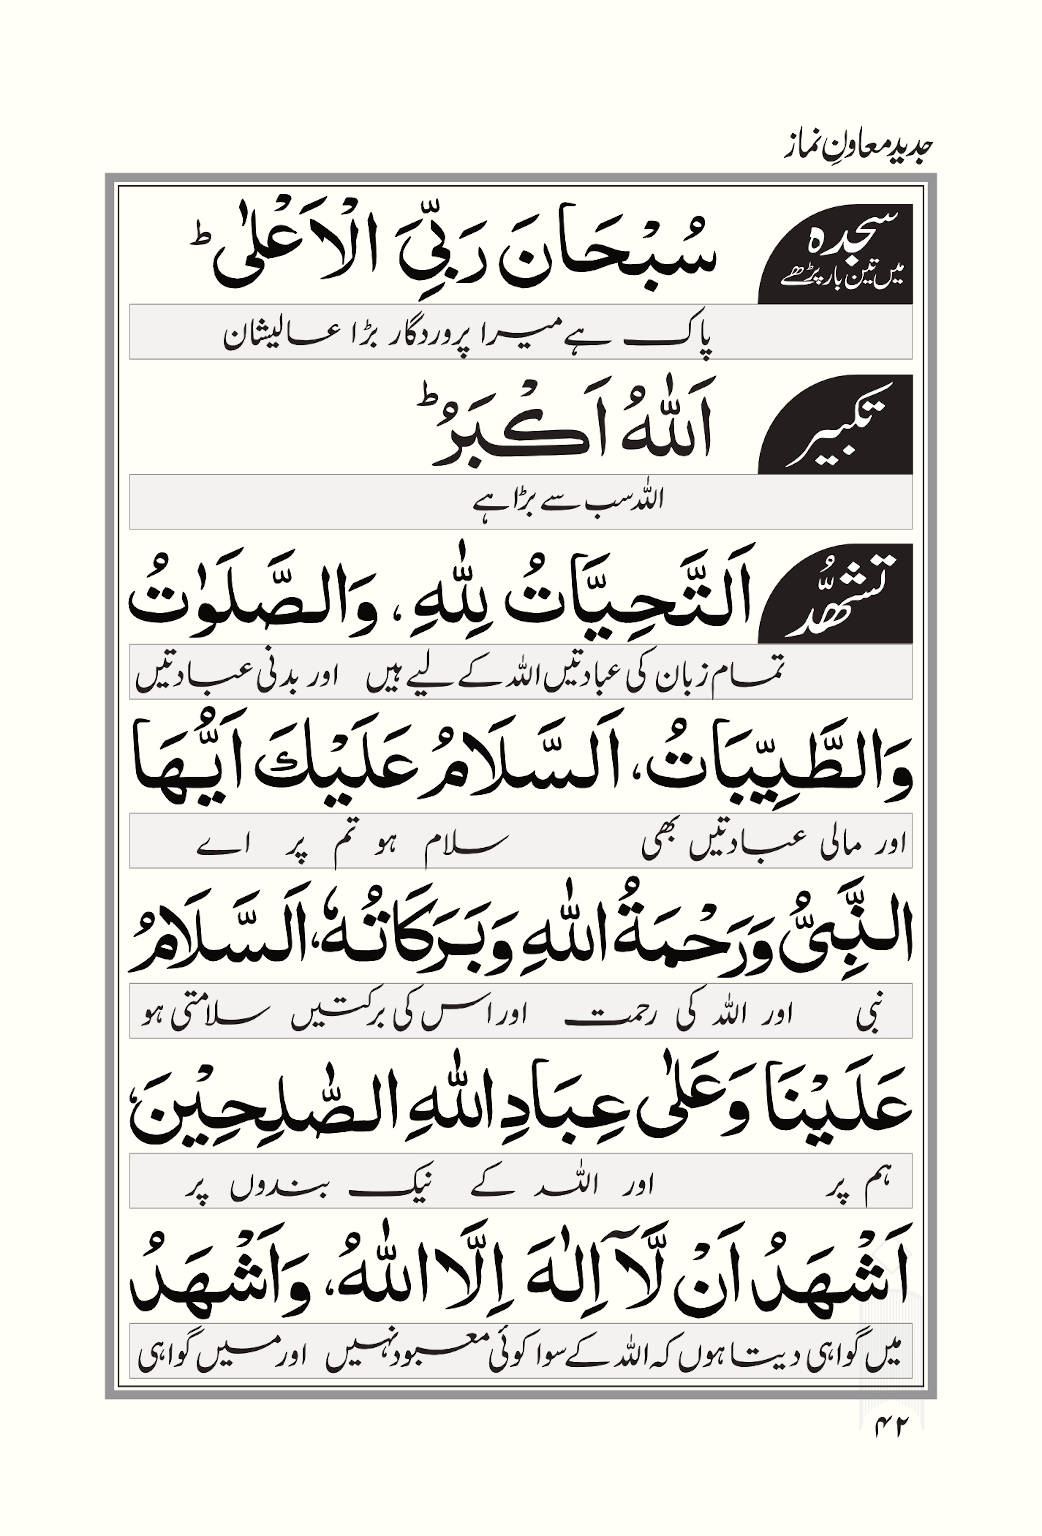 جدید معاونِ نماز
سجدہ
میں تین بار پڑھے
سُبْحَانَ رَبِّیَ الْاَعْلٰی ؕ
پاک ہے میرا پروردگار بڑا عالیشان
تکبیر
اَللّٰهُ اَکْبَرُ ؕ
اللہ سب سے بڑا ہے
تشہُّد
اَلتَّحِیَّاتُ لِلّٰهِ، وَالصَّلَوٰتُ
تمام زبان کی عبادتیں اللہ کے لیے ہیں اور بدنی عبادتیں
وَالطَّیِّبَاتُ، اَلسَّلَامُ عَلَیْكَ اَیُّهَا
اور مالی عبادتیں بھی سلام ہو تم پر اے
النَّبِیُّ وَرَحْمَةُ اللّٰهِ وَبَرَکَاتُهٗ، اَلسَّلَامُ
نبی اور اللہ کی رحمت اور اس کی برکتیں سلامتی ہو
عَلَیْنَا وَعَلٰی عِبَادِ اللّٰهِ الصّٰلِحِیْنَ،
ہم پر اور اللہ کے نیک بندوں پر
اَشْهَدُ اَنْ لَّآ اِلٰهَ اِلَّا اللّٰهُ، وَاَشْهَدُ
میں گواہی دیتا ہوں کہ اللہ کے سوا کوئی معبود نہیں اور میں گواہی
۴۲